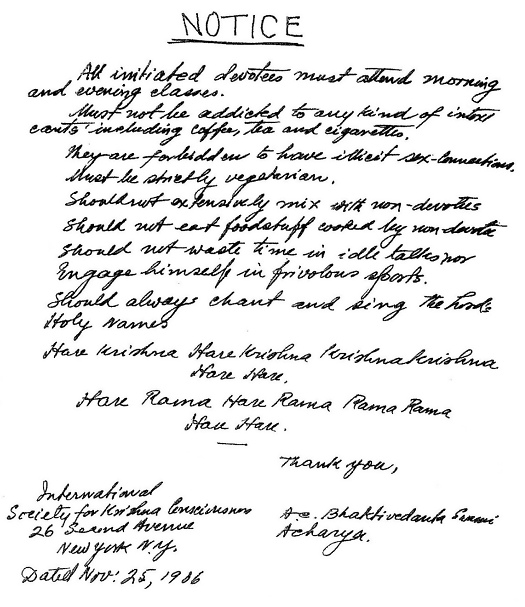 NOTICE
All initiated devotees must attend morning
and evening classes.
Must not be addicted to any kind of intoxi
cants including coffee, tea and cigarettes.
They are forbidden to have illicit sex-connections.
Must be strictly vegetarian.
Should not extensively mix with non-devotees
Should not eat foodstuff cooked by non-devotee
Should not waste time in idle talks nor
Engage himself in frivolous sports.
Should always chant and sing the Lord's
Holy Names
Hare Krishna Hare Krishna Krishna Krishna
Hare Hare.
Hare Rama Hare Rama Rama Rama
Hare Hare.
Thank you,
International
Society for Krishna Consciousness
26 Second Avenue
New York N.Y.
Dated Nov. 25, 1966
A.C. Bhaktivedanta Swami
Acharya.